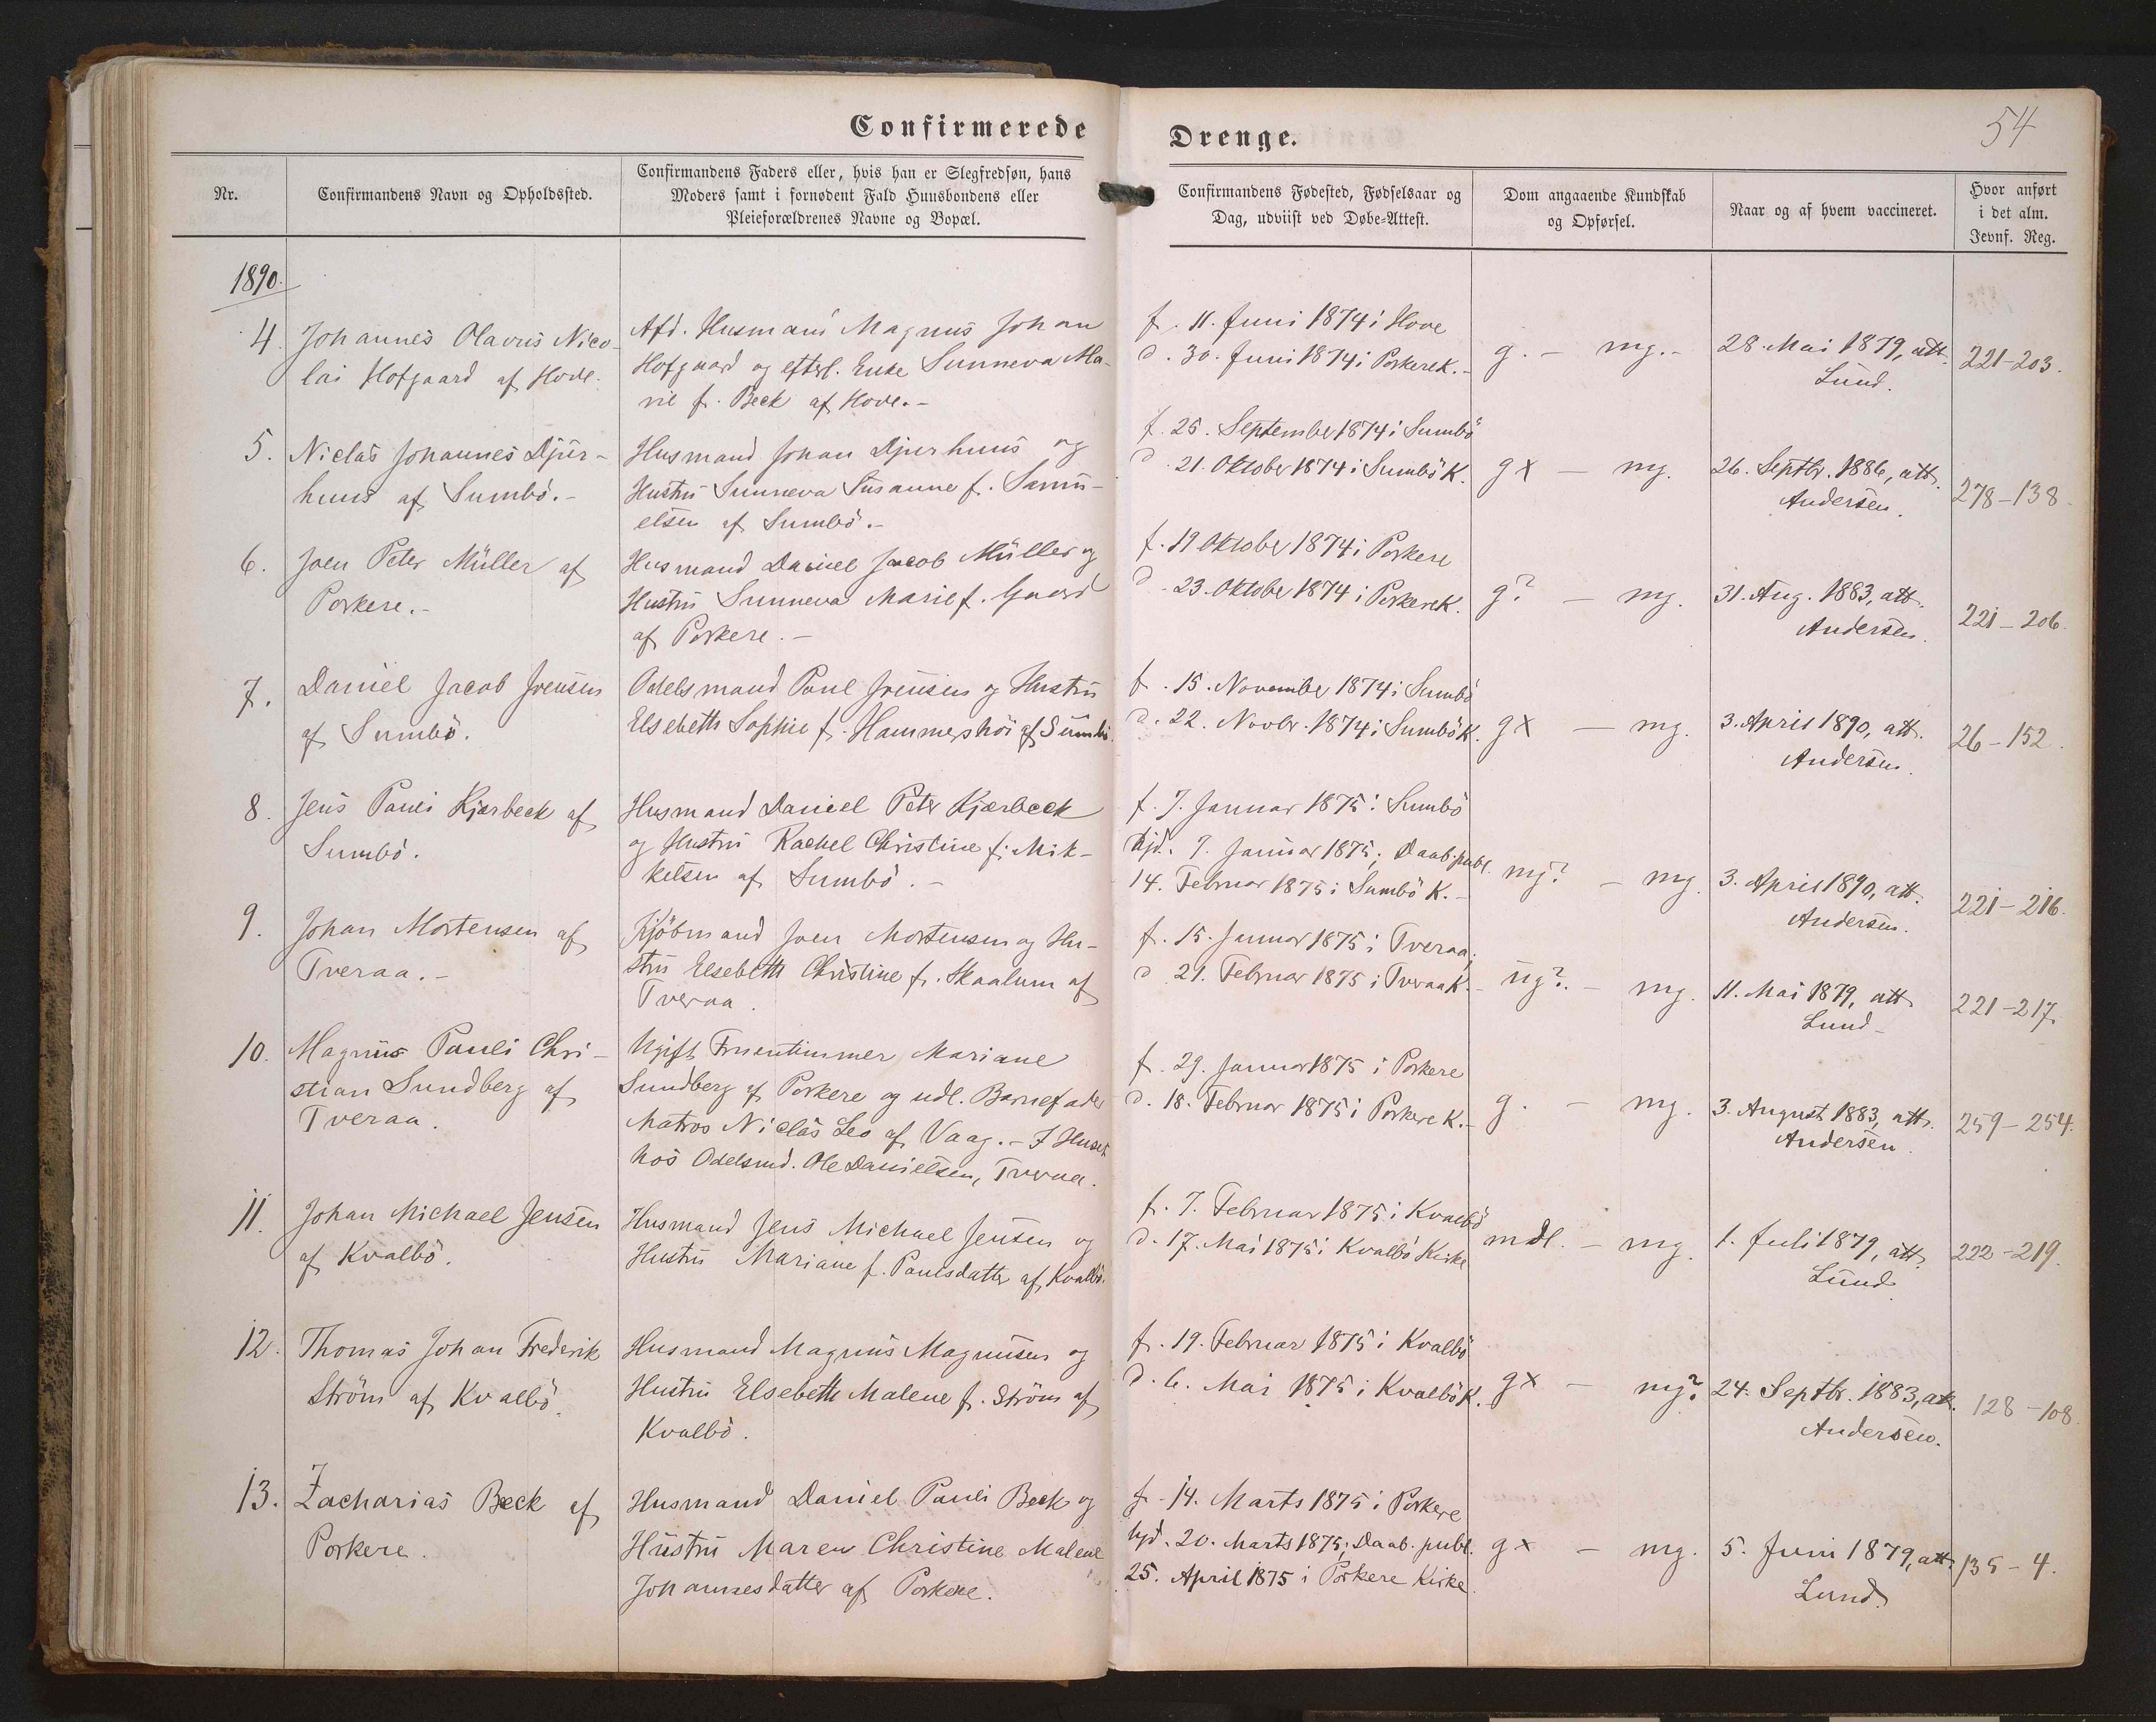 Confirmerede
Drenge.
54
Nr.
Confirmandens Navn og Opholdssted.
Confirmandens Faders eller, hvis han er Slegfredsøn, hans
Moders samt i fornødent Fald Huusbondens eller
Pleieforældrenes Navne og Bopæl.
Confirmandens Fødested, Fødselsaar og
Dag, udviist ved Døbe-Attest.
Dom angaaende Kundskab
og Opførsel.
Naar og af hvem vaccineret.
Hvor anført
i det alm.
Jevnf. Reg.
1890.
4. Johannes Olavus Nico-
lai Hofgaard af Hove.
Afd. Husmand Magnus Johan
Hofgaard og efterl. Enke Sunneva Ma-
rie f. Beck af Hove.-
f. 11. Juni 1874 i Hove
d. 30. Juni 1874 i Porkere K.-
g. - mg.-
28. Mai 1879, att.
Lund.
221-203.
5. Niclas Johannes Djur-
huus af Sumbö.-
Husmand Johan Djurhuus og
Hustru Sunneva Susanne f. Samu-
elsen af Sumbö.-
f. 25. September 1874 i Sumbö
d. 21. Oktober 1874 i Sumbö K.
gx - mg.
26. Septbr. 1886, att.
Andersen.
278-138
6. Joen Peter Müller af
Porkere.-
Husmand Daniel Jacob Müller og
Hustru Sunneva Marie f. Gaard
af Porkere.-
f. 19 Oktober 1874 i Porkere
d. 23. Oktober 1874 i Porkere K.
g? - mg.
31. Aug. 1883, att.
Andersen.
221-206.
7. Daniel Jacob Joensen
af Sumbö.
Odelsmand Poul Joensen og Hustru
Elsebeth Sophie f. Hammershöi af Sumbö.
f. 15. November 1874 i Sumbö
d. 22. Novbr. 1874 i Sumbö K.
gx - mg.
3. April 1890, att.
Andersen.
26-152.
8. Jens Pauli Kjærbeck af
Sumbö.
Husmand Daniel Peter Kjærbeck
og Hustru Rachel Christine f. Mik-
kelsen af Sumbö.-
f. 7. Januar 1875 i Sumbö
hjd. 7. Januar 1875; Daab. publ.
14. Februar 1875 i Sumbö K.-
mg? - mg.
3. April 1890, att.
Andersen.
221-216.
9. Johan Mortensen af
Tveraa.-
Kjöbmand Joen Mortensen og Hu-
stru Elsebeth Christine f. Skaalum af
Tveraa.
f. 15. Januar 1875 i Tveraa;
d. 21. Februar 1875 i Tveraa K.-
ug?. - mg.
11. Mai 1879, att
Lund-
221-217.
10. Magnus Pauli Chri-
stian Sundberg af
Tveraa.
Ugift Fruentimmer Mariane
Sundberg af Porkere og udl. Barnefader
Matros Niclas Leo af Vaag.- I Huset
hos Odelsmd. Ole Danielsen, Tveraa.
f. 29. Januar 1875 i Porkere
d. 18. Februar 1875 i Porkere K.-
g. - mg.
3. August 1883, att.
Andersen.
259-254.
11. Johan Michael Jensen
af Kvalbö.
Husmand Jens Michael Jensen og
Hustru Mariane f. Poulsdatter af Kvalbö.
f. 7. Februar 1875 i Kvalbö
d. 17. Mai 1875 i Kvalbö Kirke
mdl. - mg.
1. Juli 1879, att.
Lund.
222-219.
12. Thomas Johan Frederik
Ström af Kvalbö.
Husmand Magnus Magnusen og
Hustru Elsebeth Malene f. Ström af
Kvalbö.
f. 19. Februar 1875 i Kvalbö
d. 6. Mai 1875 i Kvalbö K.
gx - mg?
24. Septbr. 1883, att.
Andersen.
128-108.
13. Zacharias Beck af
Porkere.
Husmand Daniel Pauli Beck og
Hustru Maren Christine Malene
Johannesdatter af Porkere.
f. 14. Marts 1875 i Porkere
hjd. 20. Marts 1875; Daab. publ.
25. April 1875 i Porkere Kirke.
gx - mg.
5. Juni 1879, att.
Lund.
135-4.